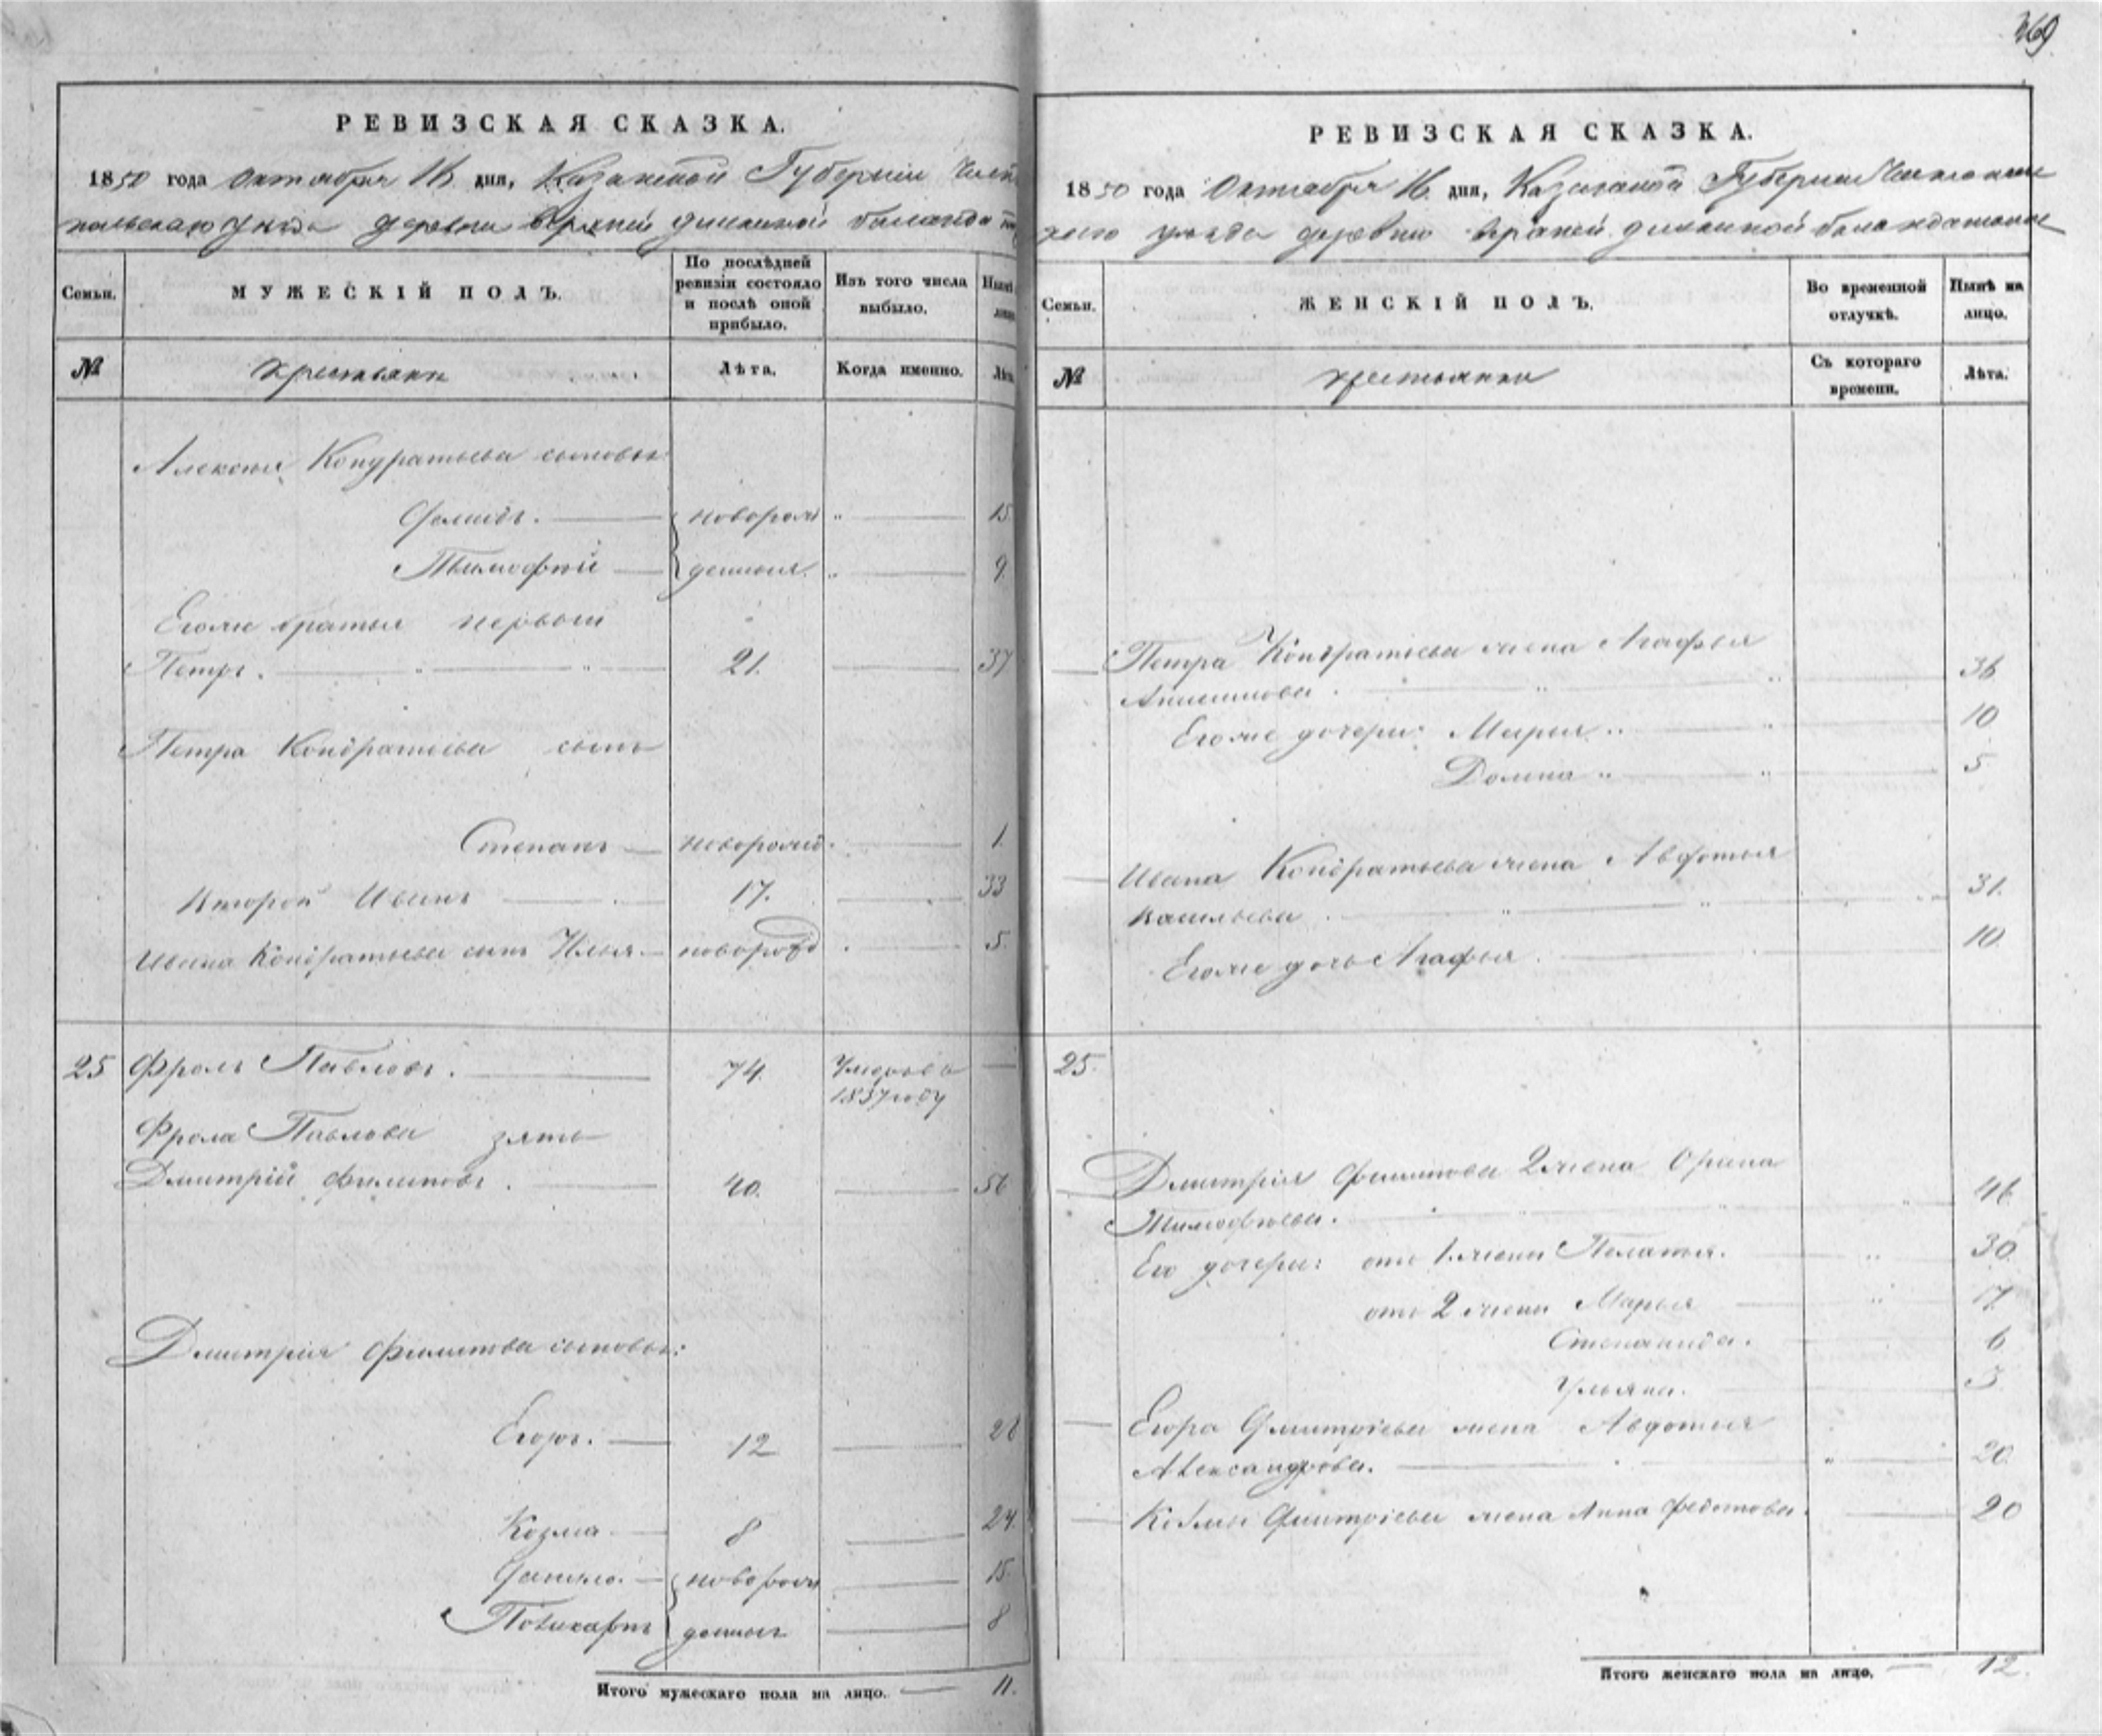 369
РЕВИЗСКАЯ СКАЗКА.
1850 года Октября 16 дня, Казанской Губернiи Чисто
польскаго уѣзда деревни верхней
Семьи.
МУЖЕСКІЙ ПОЛЪ.
По послѣдней ревизіи состояло и послѣ оной прибыло.
Изъ того числа выбыло.
Нынѣ
№
крестьяне
Лѣта.
Когда именно.
Лѣта
Алексея Кондратьева сыновья
Демидъ. — новорож „ — 15
Тимофей — денные. „ — 9
Егоже братья первый
Петръ. — 21. — 37
Петра Кондратьева сынъ
Степанъ — новорожд. — 1.
Второй Иванъ — 17. — 33
Ивана Кондратьева сынъ Илья. — новорожд. — 5.
25 Фролъ Павловъ. — 74. Умеръ в —
1837 году
Фрола Павлова зять
Дмитрій Филиповъ. — 40. — 56
Дмитрия Филипова сыновья:
Егоръ. — 12 — 28
Козма — 8 — 24.
Данило. — новорож — 15.
Поликарпъ денные — 8
Итого мужескаго пола на лицо. — 11.
РЕВИЗСКАЯ СКАЗКА.
1850 года Октября 16 дня, Казанской Губернии Чистополь
скаго уѣзда деревни верхней
Семьи.
ЖЕНСКІЙ ПОЛЪ.
Во временной отлучкѣ.
Нынѣ на лицо.
№
крестьянки
Съ котораго времени.
Лѣта.
— Петра Кондратьева жена Агафья
— 36
Егоже дочери: Марья „ — 10
Домна „ — 5
— Ивана Кондратьева жена Авдотья
Васильева. — 31.
Егоже дочь Агафья. — 10.
25.
— Дмитрия Филипова 2 жена Орина
Тимофѣева. — 46
Его дочери: отъ 1 жены Пелагья. — 30.
отъ 2 жены Марья — 17
Степанида. — 6
Ульяна. — 3
— Егора Дмитріева жена Авдотья
Александрова. — 20
— Козмы Дмитріева жена Анна Федотова. — 20
Итого женскаго пола на лицо. — 12.